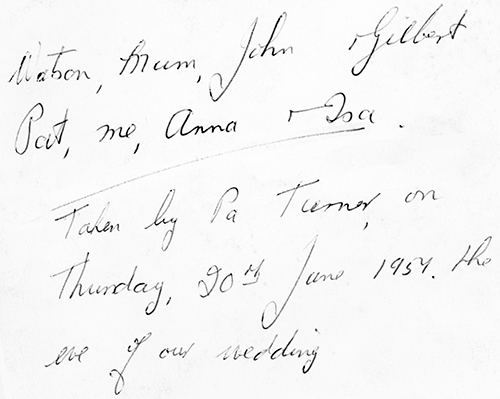 Watson, Mum, John + Gilbert
Pat, me, Anna + Isa.
Taken by Pa Turner, on
Thursday, 20th June 1957. the
eve of our wedding